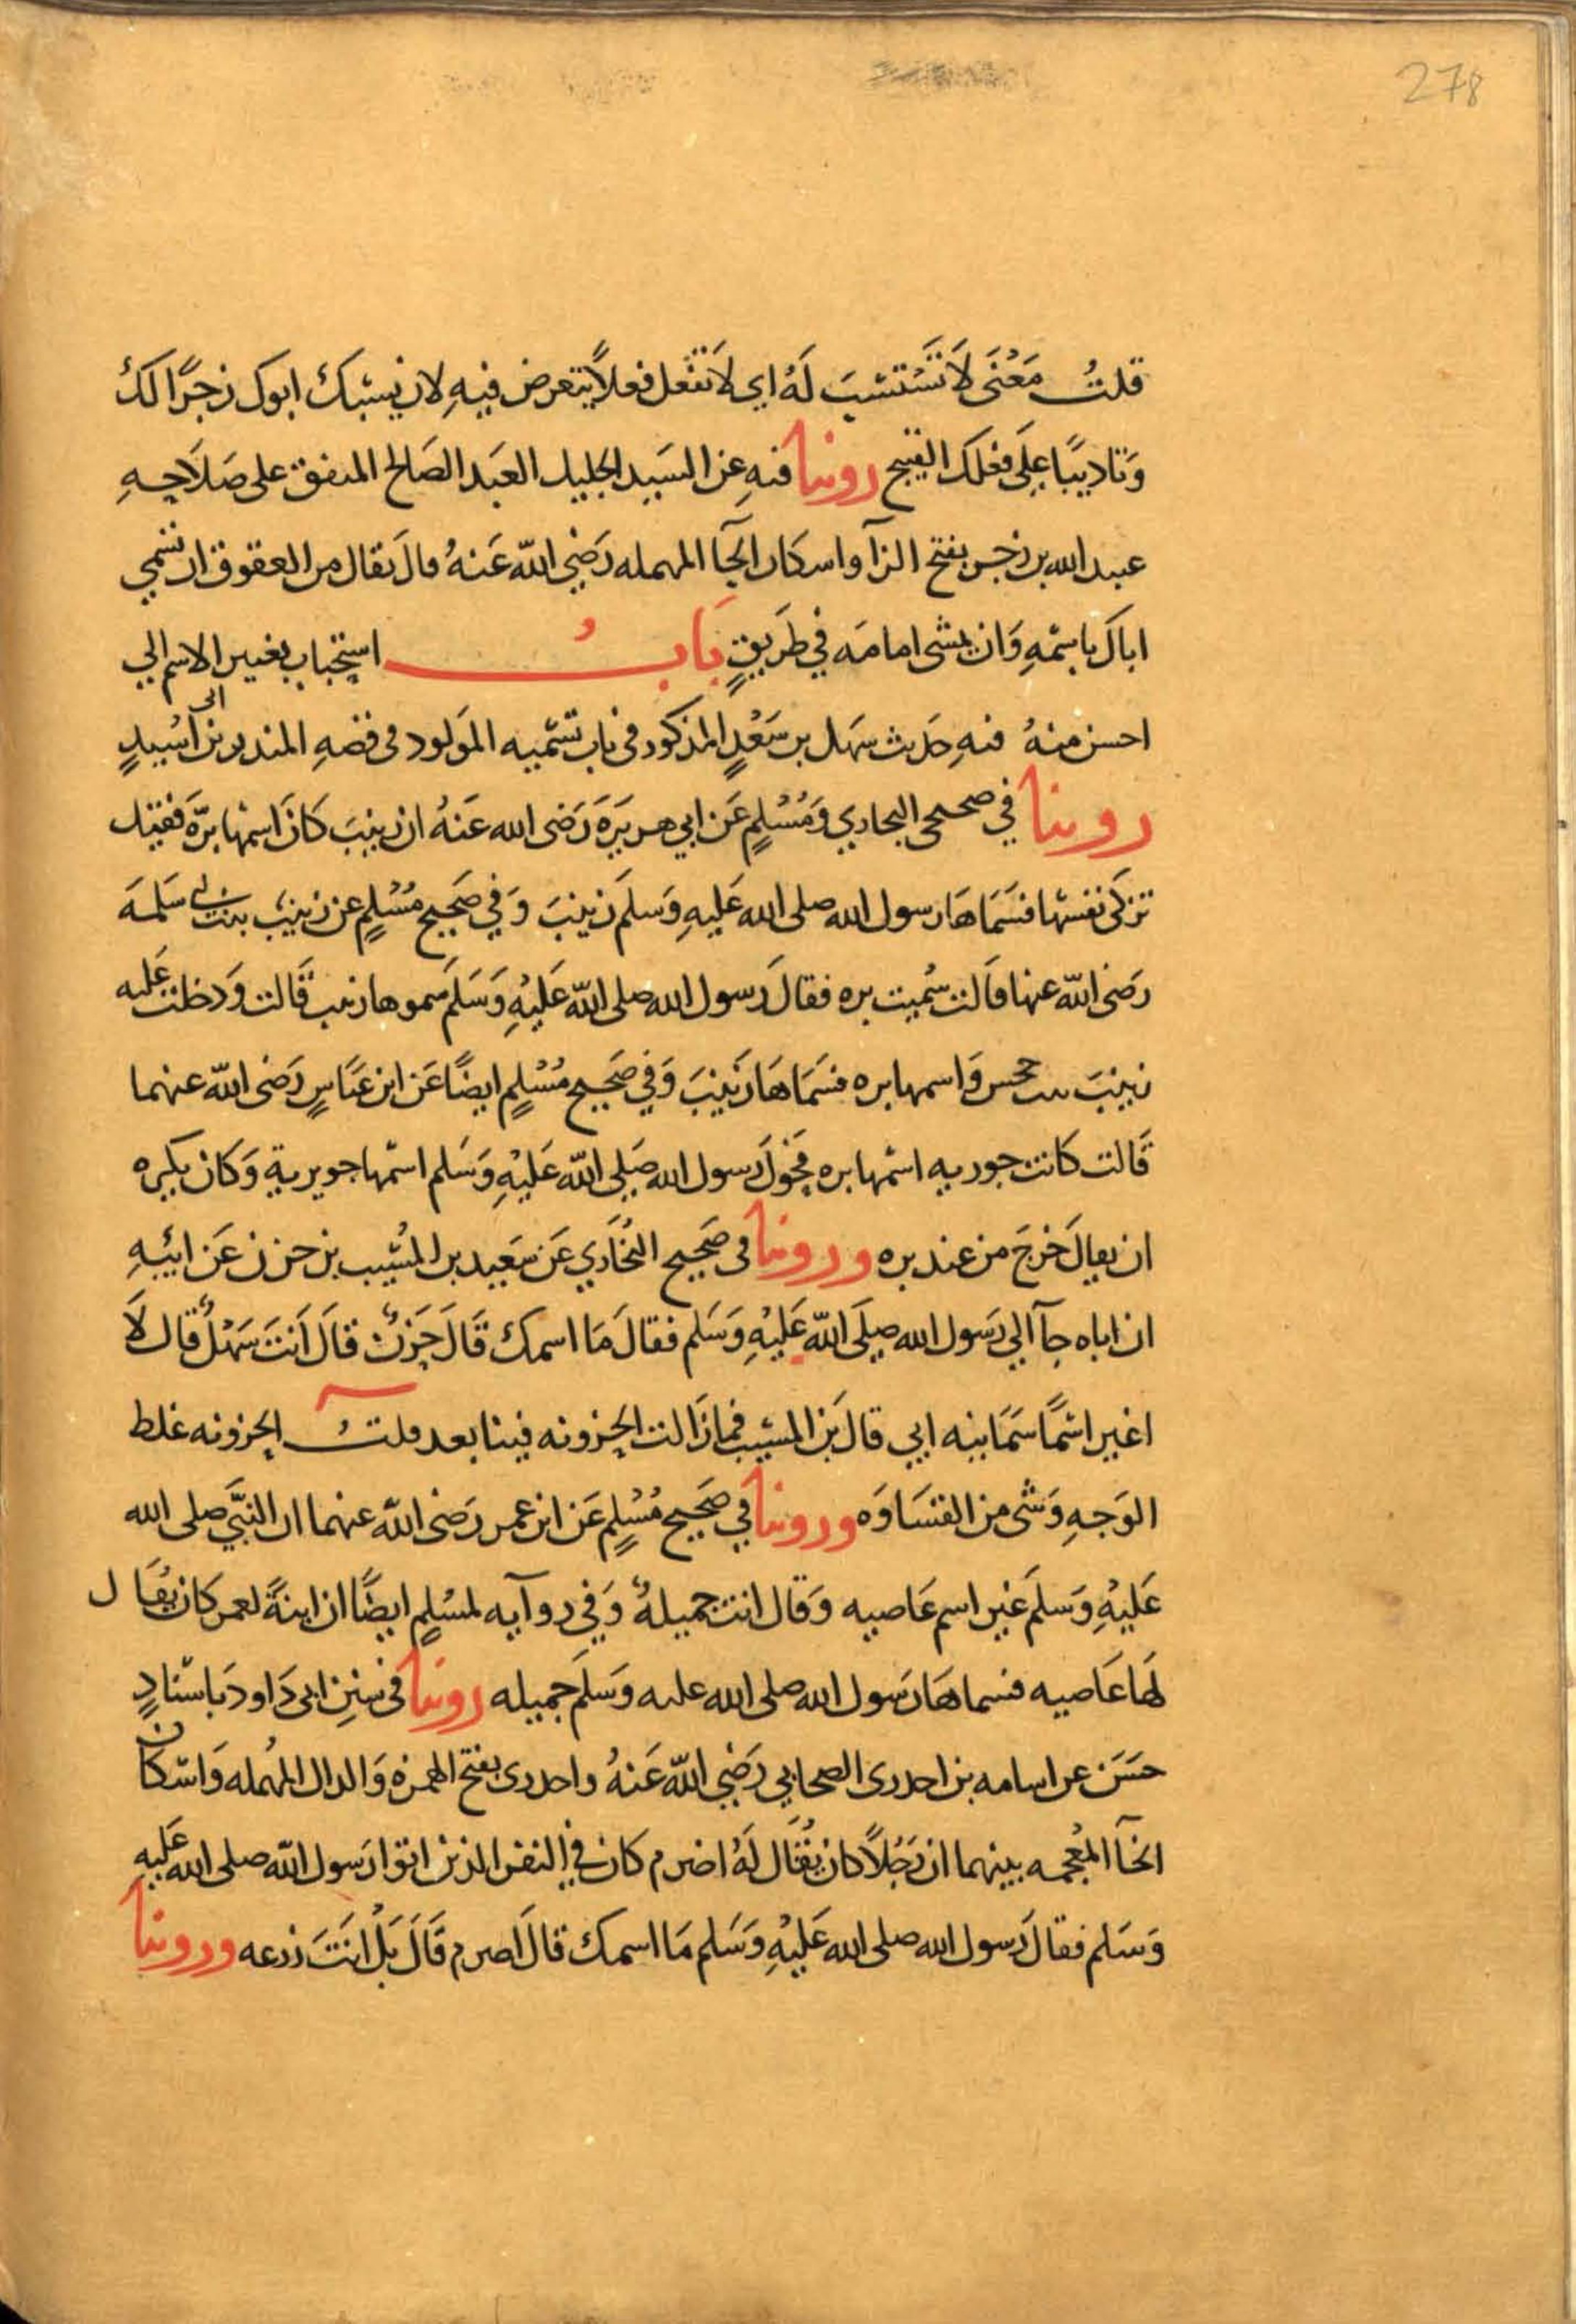 278
قلتُ مَعْنَى لَا تَسْتَسِبَّ لَهُ اي لا تَفْعل فعلاً يتعرض فيهِ لان يسُبكَ ابوك زجرًا لكَ
وَتاديبًا عَلَى فعلك القبيح روينا فيهِ عن السَيد الجليل العَبد الصَالح المتفق على صَلَاحِهِ
عبيد الله بن زحر بفتح الزآ واسكان الحآ المهمله رَضِي اللّه عَنهُ قال يَقال من العقوق ان تسَمي
اباكَ باسْمهِ وَان تمشى امامَه في طَريقٍ بَابُ استِحْباب تغيير الاسم الي
احسن منهُ فيهِ حَديث سَهل بن سَعْدٍ المذكور في باب تسْميه المَولود في قصهِ المنذر بن ابى اُسَيدٍ
روينا في صحيحي البخاري وَمُسْلِمٍ عَن ابي هريرَةَ رَضى الله عَنهُ ان زينبَ كانَ اسمُها برّةَ فقيل
تزكى نفسَها فسَمَاهَا رسول الله صلى الله عَليهِ وَسَلمَ زينبَ وَفي صَحِيحِ مُسْلِمٍ عن زينبَ بنت ابي سَلمَه
رَضى اللّه عنها قالت سُميت بره فقال رَسول الله صلى اللّه عَليْهِ وَسَلمَ سموها زينب قَالت وَدخلت عَليه
زينبَ بنت جحش وَاسمها بره فسَمَاهَا زَينبَ وَفي صَحِيحِ مُسْلِمٍ ايضًا عَن ابن عبَاسٍ رَضى اللّه عنهما
قَالت كانت جويريه اسْمها بره فحَولَ رَسول الله صَلى اللّه عَليْهِ وَسَلم اسْمها جويرية وَكان يكره
ان يقالَ خرَجَ من عند بره وروينا في صَحِيحِ البُخَاري عَن سَعيد بن المُسَيب بن حزن عَن ابيْهِ
ان اباه جآ الي رَسول الله صَلَى اللّه عَليْهِ وَسَلم فقالَ مَا اسمكَ قَالَ حَزنٌ قالَ اَنتَ سَهْلٌ قال لَا
اغير اسْمًا سَمَانيه ابي قال بَن المسَيب فما زالت الحزونه فينا بعد قلتُ الحزونه غلظ
الوَجهِ وَشى من القسَاوَه وروينا في صَحِيحِ مُسْلِمٍ عَن ابن عمر رَضى اللّه عنهما ان النبَّي صلى الله
عَليْهِ وَسَلمَ غير اسم عَاصيه وَقال انت جميلهٌ وَفي روآيه لمسْلمٍ ايضًا ان ابنةً لعمر كان يُقَال
لهَا عَاصيه فسماهَا رَسول الله صلى الله عليه وَسَلمَ جميله روينا في سننِ ابى دَاود بَاسْنادٍ
حسَن عن اسامه بن اخدرى الصحابي رَضِي اللّه عَنهُ واخدرى بفتح الهمزه وَالدال المُهمله وَاسْكان
الخآ المعْجمه بينهما ان رَجُلاً كان يُقَال لَهُ اصرم كان في النفر الذين اتوا رَسول اللّه صلى الله عَليهِ
وَسَلم فقالَ رَسول الله صلى الله عَليْهِ وَسَلم مَا اسمكَ قالَ اصرم قَالَ بَلْ انتَ زرعه وروينا